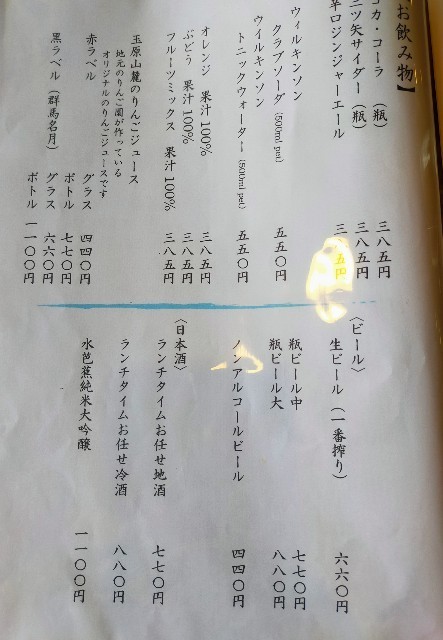 お飲み物】
コカ・コーラ（瓶） 三八五円
三ツ矢サイダー（瓶） 三八五円
辛口ジンジャーエール 三八五円
ウィルキンソン
クラブソーダ（500ml pet） 五五〇円
ウイルキンソン
トニックウォーター（500ml pet） 五五〇円
オレンジ 果汁100% 三八五円
ぶどう 果汁100% 三八五円
フルーツミックス 果汁100% 三八五円
玉原山麓のりんごジュース
地元のりんご園が作っている
オリジナルのりんごジュースです
赤ラベル グラス 四四〇円
ボトル 七七〇円
黒ラベル（群馬名月） グラス 六六〇円
ボトル 一一〇〇円
〈ビール〉
生ビール（一番搾り） 六六〇円
瓶ビール中 七七〇円
瓶ビール大 八八〇円
ノンアルコールビール 四四〇円
〈日本酒〉
ランチタイムお任せ地酒 七七〇円
ランチタイムお任せ冷酒 八八〇円
水芭蕉純米大吟醸 一一〇〇円